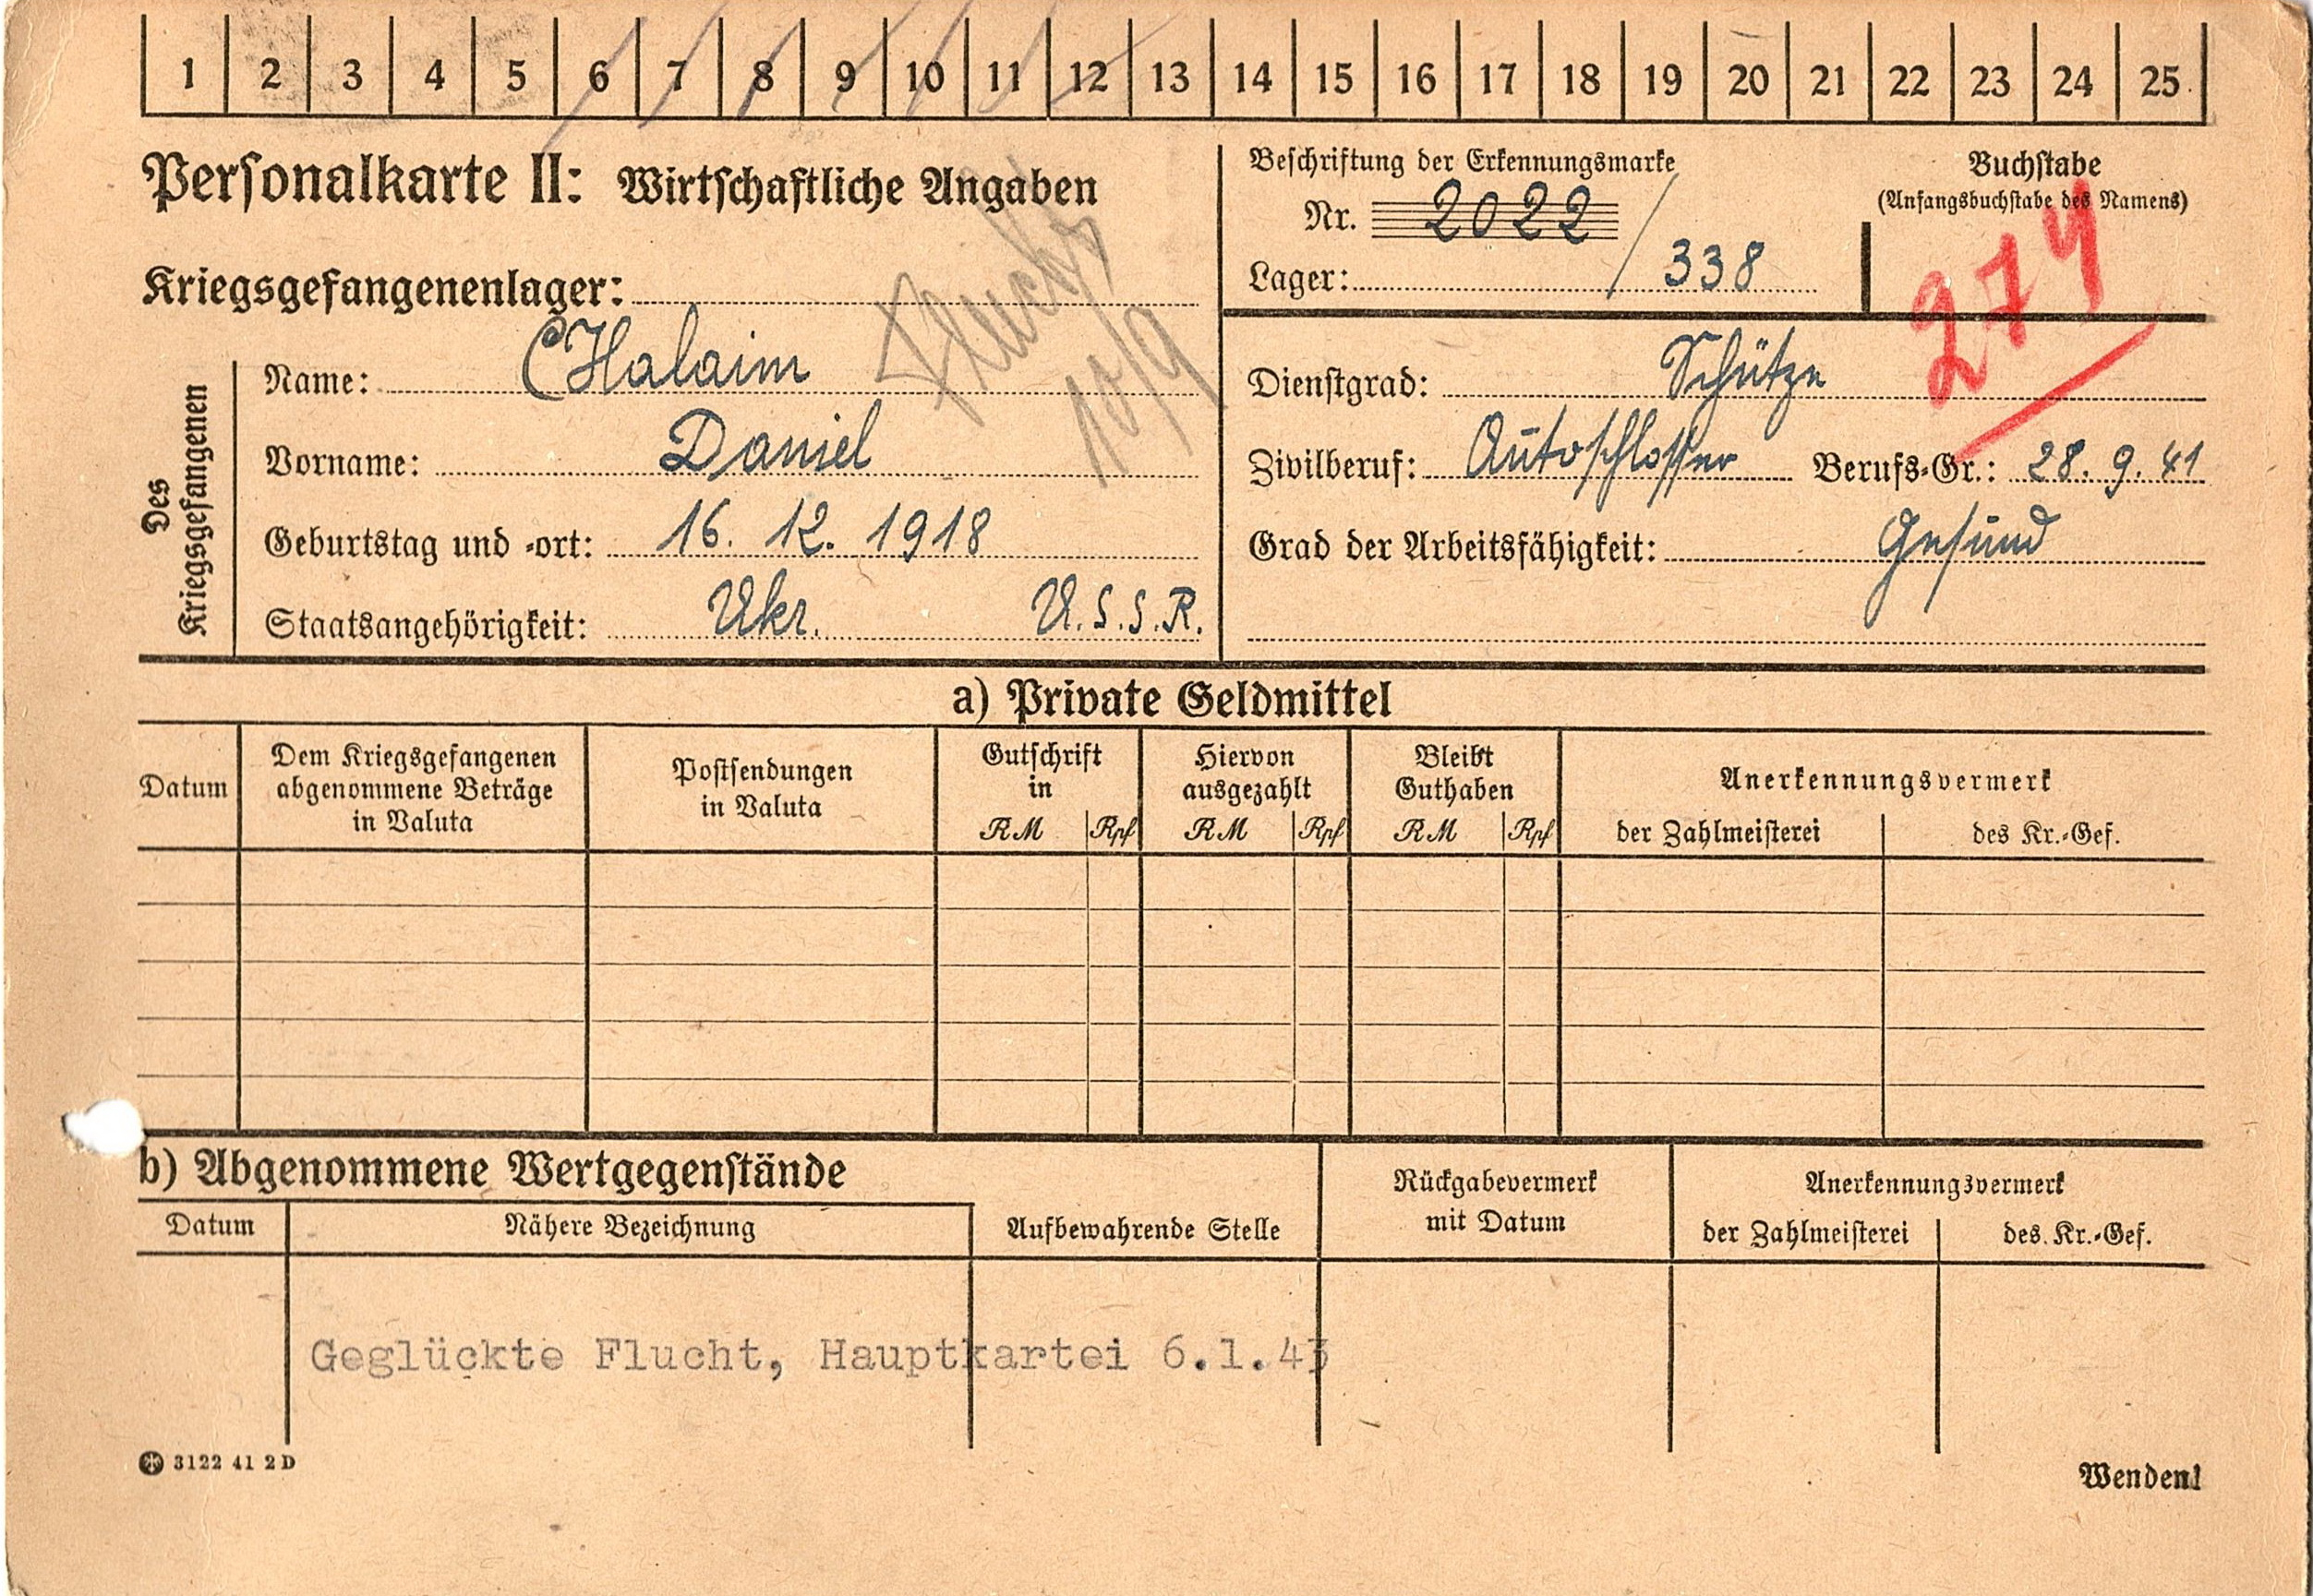 1 2 3 4 5 6 7 8 9 10 11 12 13 14 15 16 17 18 19 20 21 22 23 24 25
Personalkarte II: Wirtschaftliche Angaben
Kriegsgefangenenlager:
Flucht
10/9
Des Kriegsgefangenen
Name: CHalaim
Vorname: Daniel
Geburtstag und -ort: 16. 12. 1918
Staatsangehörigkeit: Ukr. U.S.S.R.
Beschriftung der Erkennungsmarke
Nr. 2022 /
Lager: 338
Buchstabe
(Anfangsbuchstabe des Namens)
274
Dienstgrad: Schütze
Zivilberuf: Autoschlosser Berufs-Gr.: 28. 9. 41
Grad der Arbeitsfähigkeit: Gesund
a) Private Geldmittel
Datum
Dem Kriegsgefangenen
abgenommene Beträge
in Valuta
Postsendungen
in Valuta
Gutschrift
in
RM Rpf
Hiervon
ausgezahlt
RM Rpf
Bleibt
Guthaben
RM Rpf
Anerkennungsvermerk
der Zahlmeisterei des Kr.-Gef.
b) Abgenommene Wertgegenstände
Datum Nähere Bezeichnung Aufbewahrende Stelle
Rückgabevermerk
mit Datum
Anerkennungsvermerk
der Zahlmeisterei des Kr.-Gef.
Geglückte Flucht, Hauptkartei 6.1.43
3122 41 2 D
Wenden!